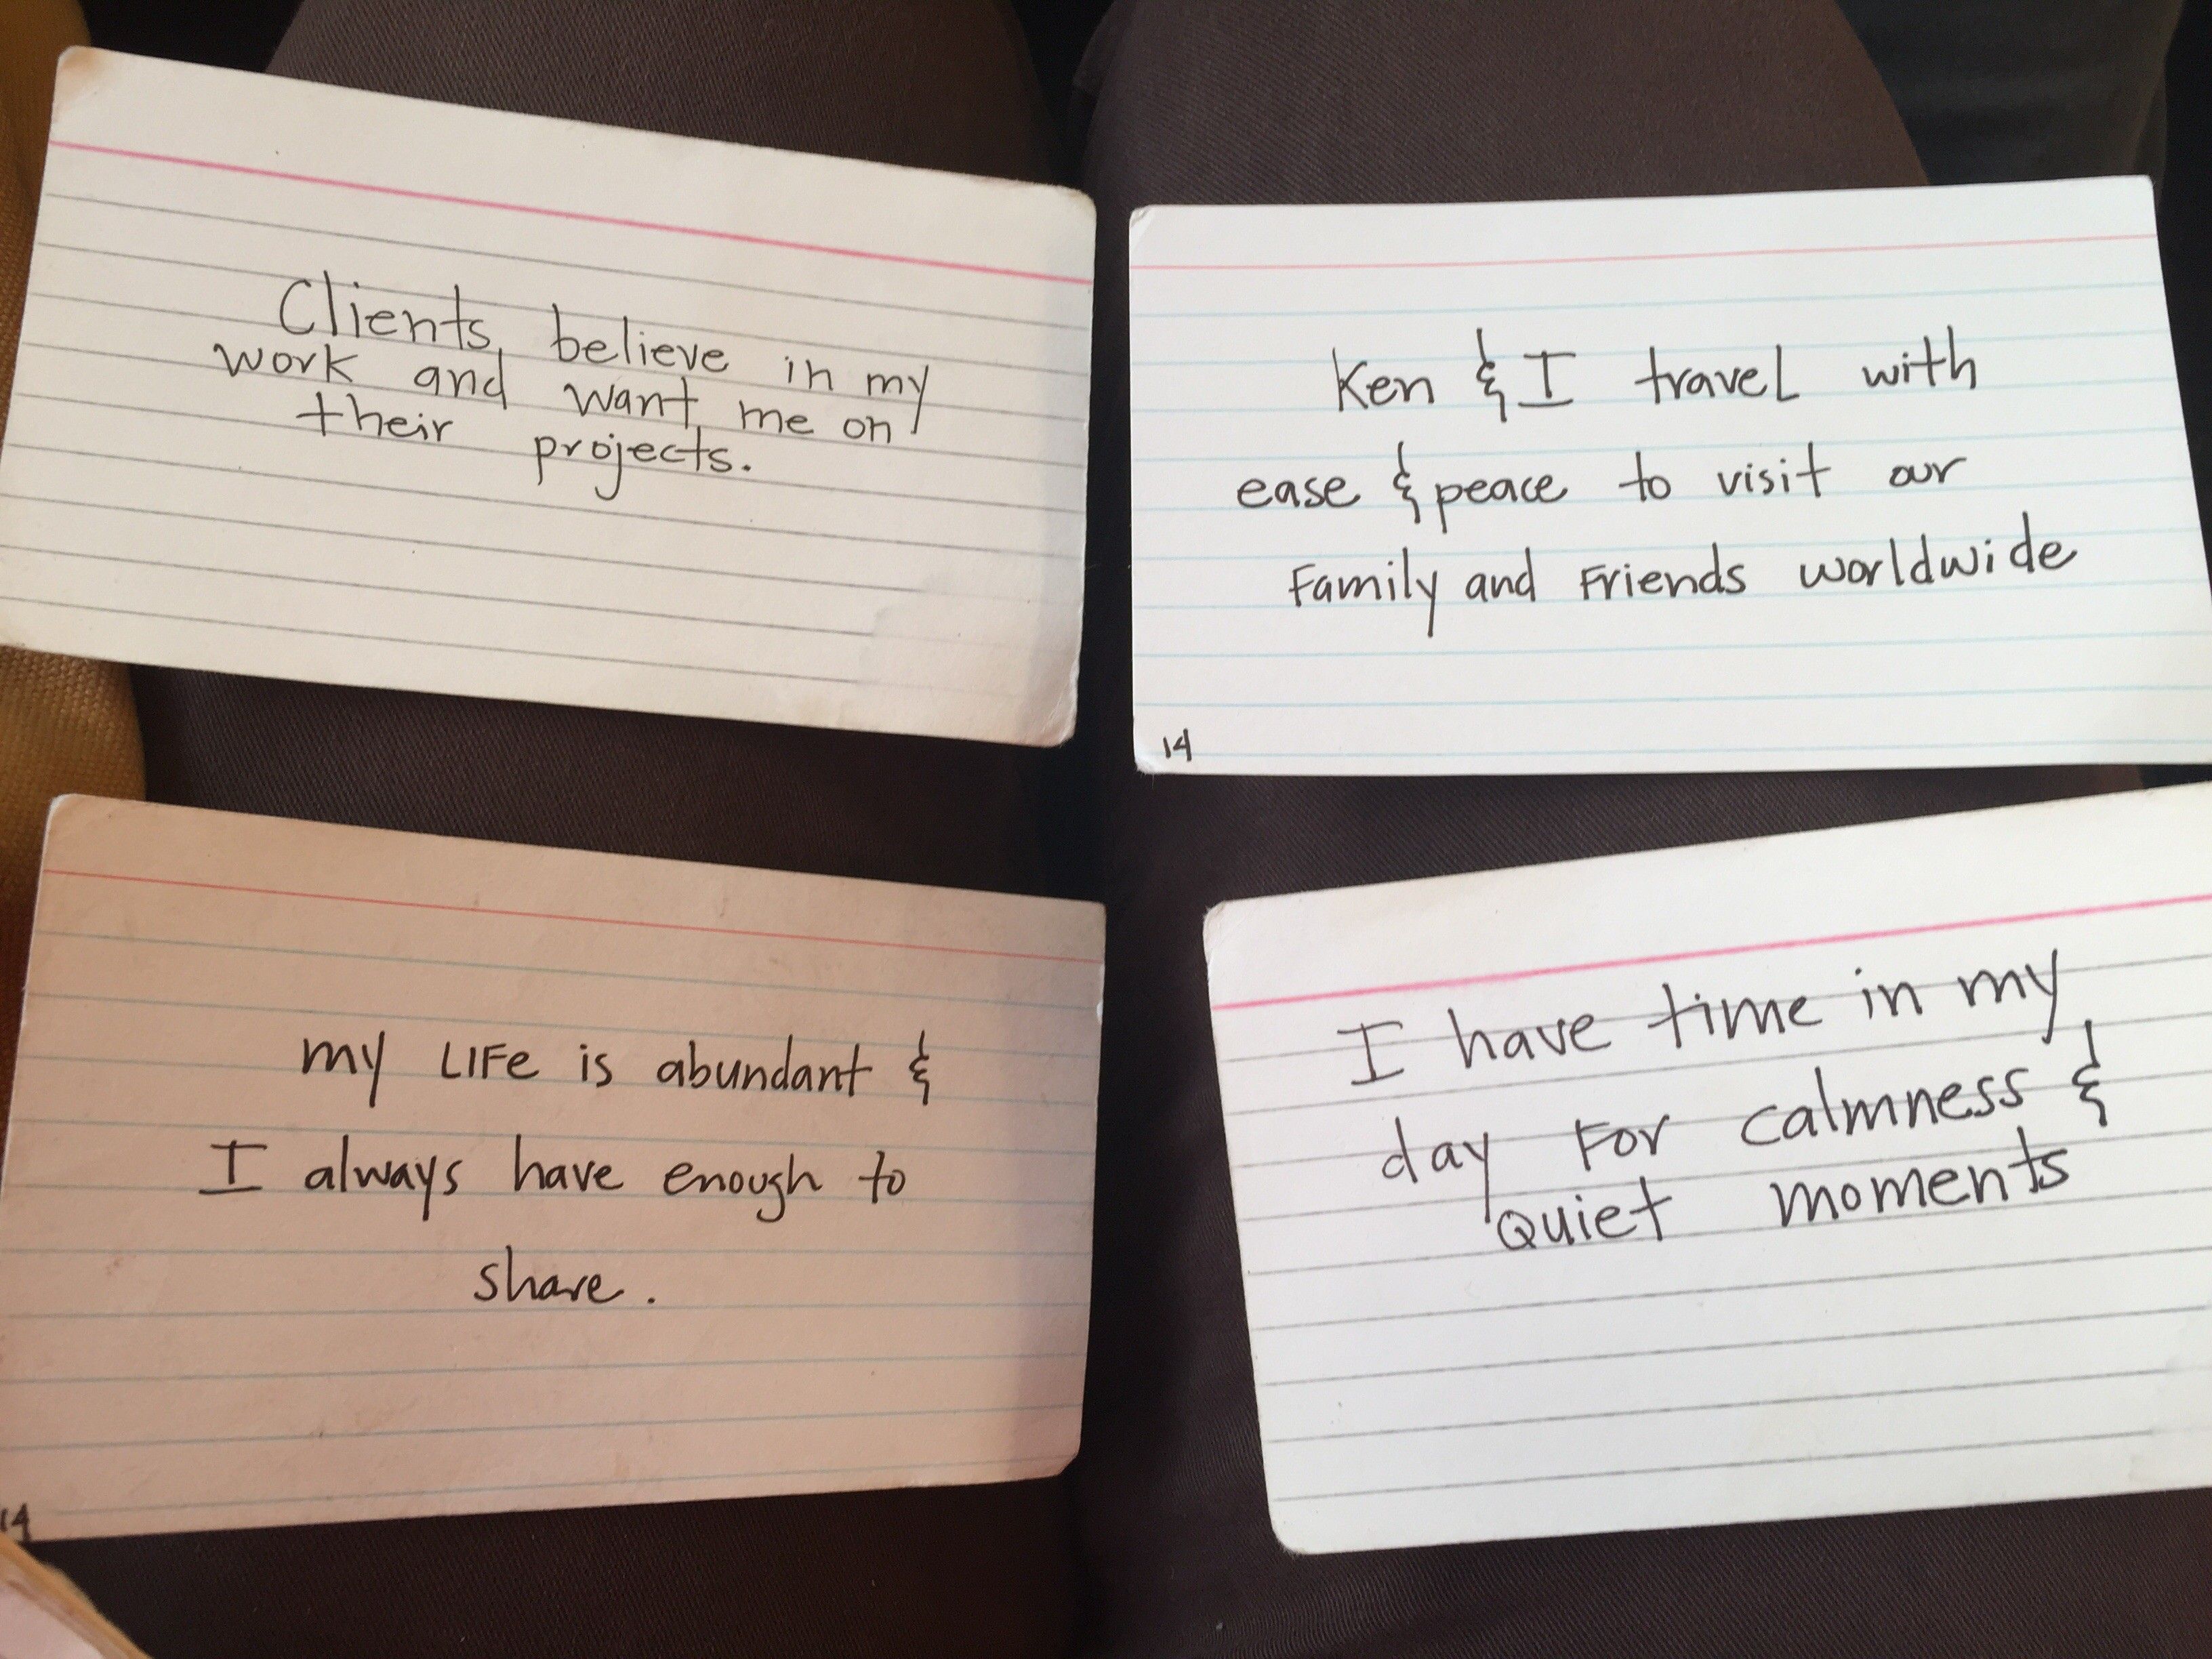 Clients believe in my
work and want me on
their projects.
Ken & I travel with
ease & peace to visit our
Family and Friends worldwide
14
my LIFe is abundant &
I always have enough to
share.
14
I have time in my
day For calmness &
Quiet moments